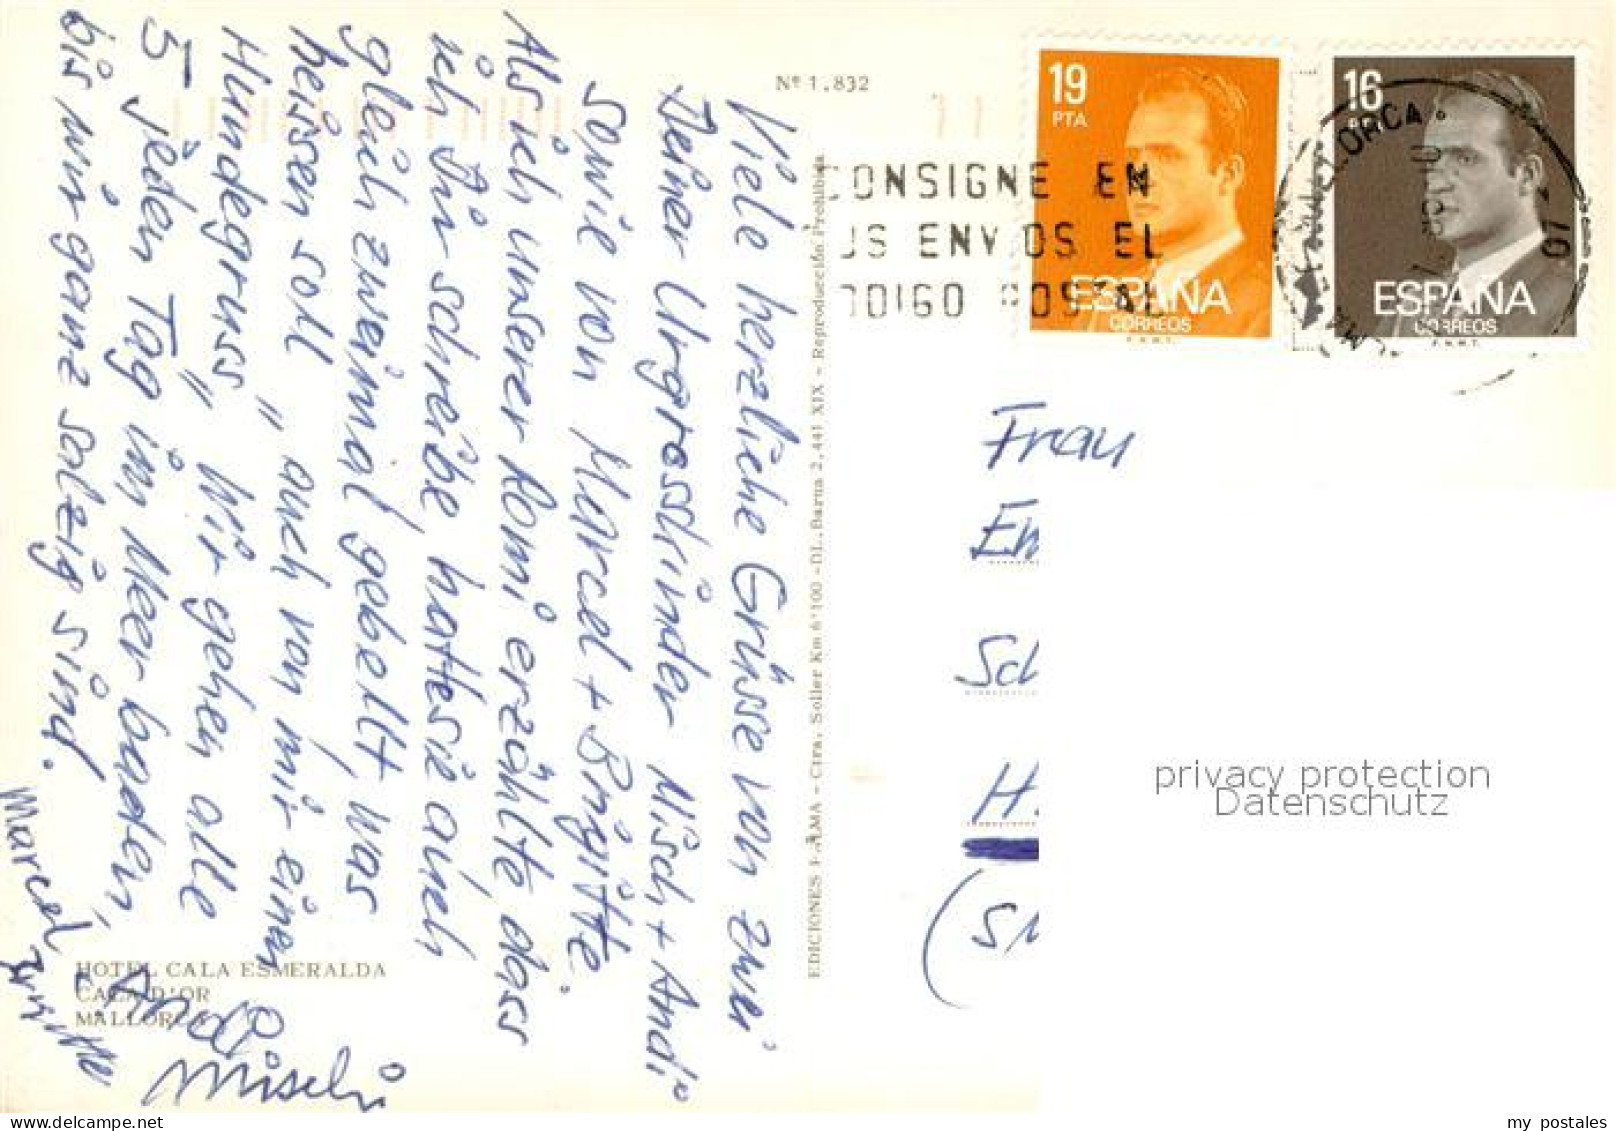 Nº 1.832
Viele herzliche Grüsse von zwei
Deiner Urgrosskinder Misch + Andi
sowie von Marcel + Brigitte.
Als ich unserer Romi erzählte, dass
ich Dir schreibe, hat sie auch
gleich zweimal gebellt, was
heissen soll " auch von mir einen
Hundegruss " Wir gehen alle
5 jeden Tag im Meer baden,
bis wir ganz salzig sind.
Marcel
Andi
HOTEL CALA ESMERALDA
CALA D'OR
MALLORCA
EDICIONES PALMA - Ctra. Soller Km 6'100 - DL. Barna 2.441 XIX - Reproducción Prohibida
CONSIGNE EN
US ENVIOS EL
ODIGO POSTAL
19
PTA
ESPAÑA
CORREOS
F.N.M.T.
16
PTA
ESPAÑA
CORREOS
F.N.M.T.
LLORCA
07
Frau
Em
Sch
H
(S
privacy protection
Datenschutz
my postales